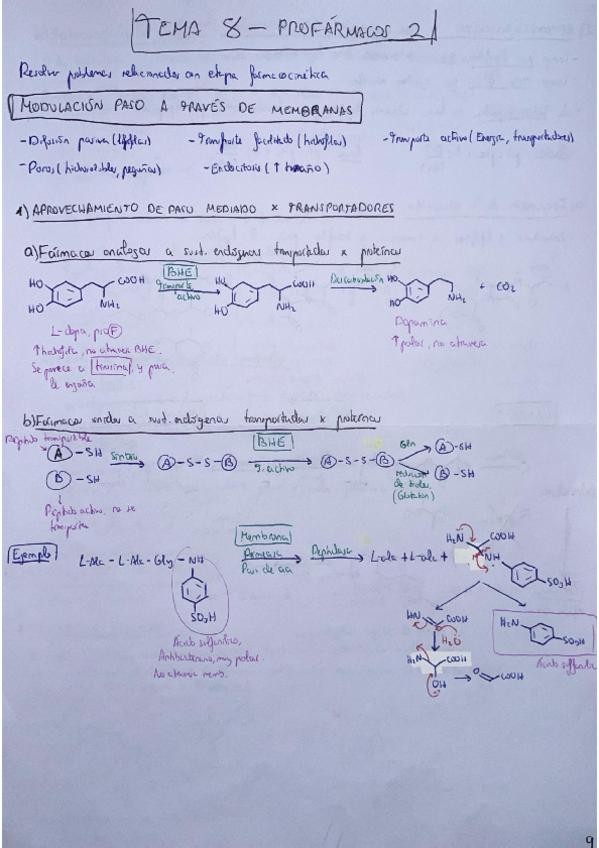 TEMA 8 - PROFÁRMACOS 2
Resolver problemas relacionados con etapa farmacocinética
MODULACIÓN PASO A TRAVÉS DE MEMBRANAS
-Difusión pasiva (lipófilas) -Transporte facilitado (hidrófilas) -Transporte activo (Energía, transportadores)
-Poros (hidrosolubles, pequeñas) -Endocitosis (↑ tamaño)
1) APROVECHAMIENTO DE PASO MEDIADO x TRANSPORTADORES
a) Fármacos análogos a sust. endógenas transportadas x proteínas
HO HO COOH NH₂
BHE
Transporte activo
HO HO COOH NH₂
Descarboxilación
HO HO NH₂ + CO₂
L-dopa, pro F
↑hidrófila, no atraviesa BHE.
Se parece a tirosina, y pasa
Dopamina
↑polar, no atraviesa
b) Fármacos unidos a sust. endógena transportadas x proteína
Péptido transportable
A -SH
B -SH
Síntesis
A -S-S- B
BHE
T. activo
A -S-S- B
A -SH
B -SH
(Glutation)
Péptido activo, no se
transporta
Ejemplo
L-Ala - L-Ala - Gly - NH
SO₃H
Membrana
Permeasa
Peptidasa
L-ala + L-ala +
H₂N COOH
NH
SO₃H
Ácido sulfanílico,
Antibacteriano, muy polar
No atraviesa memb.
HN COOH
H₂O
H₂N COOH
OH
O COOH
H₂N SO₃H
Ácido sulfanílico
9